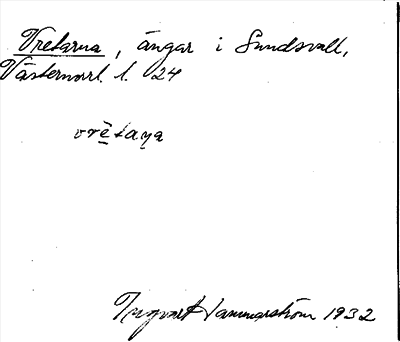 Vretarna, ängar i Sundsvall,
Västernorrl. l. 24
vrètaṇa
Ingvart Hammarström 1932